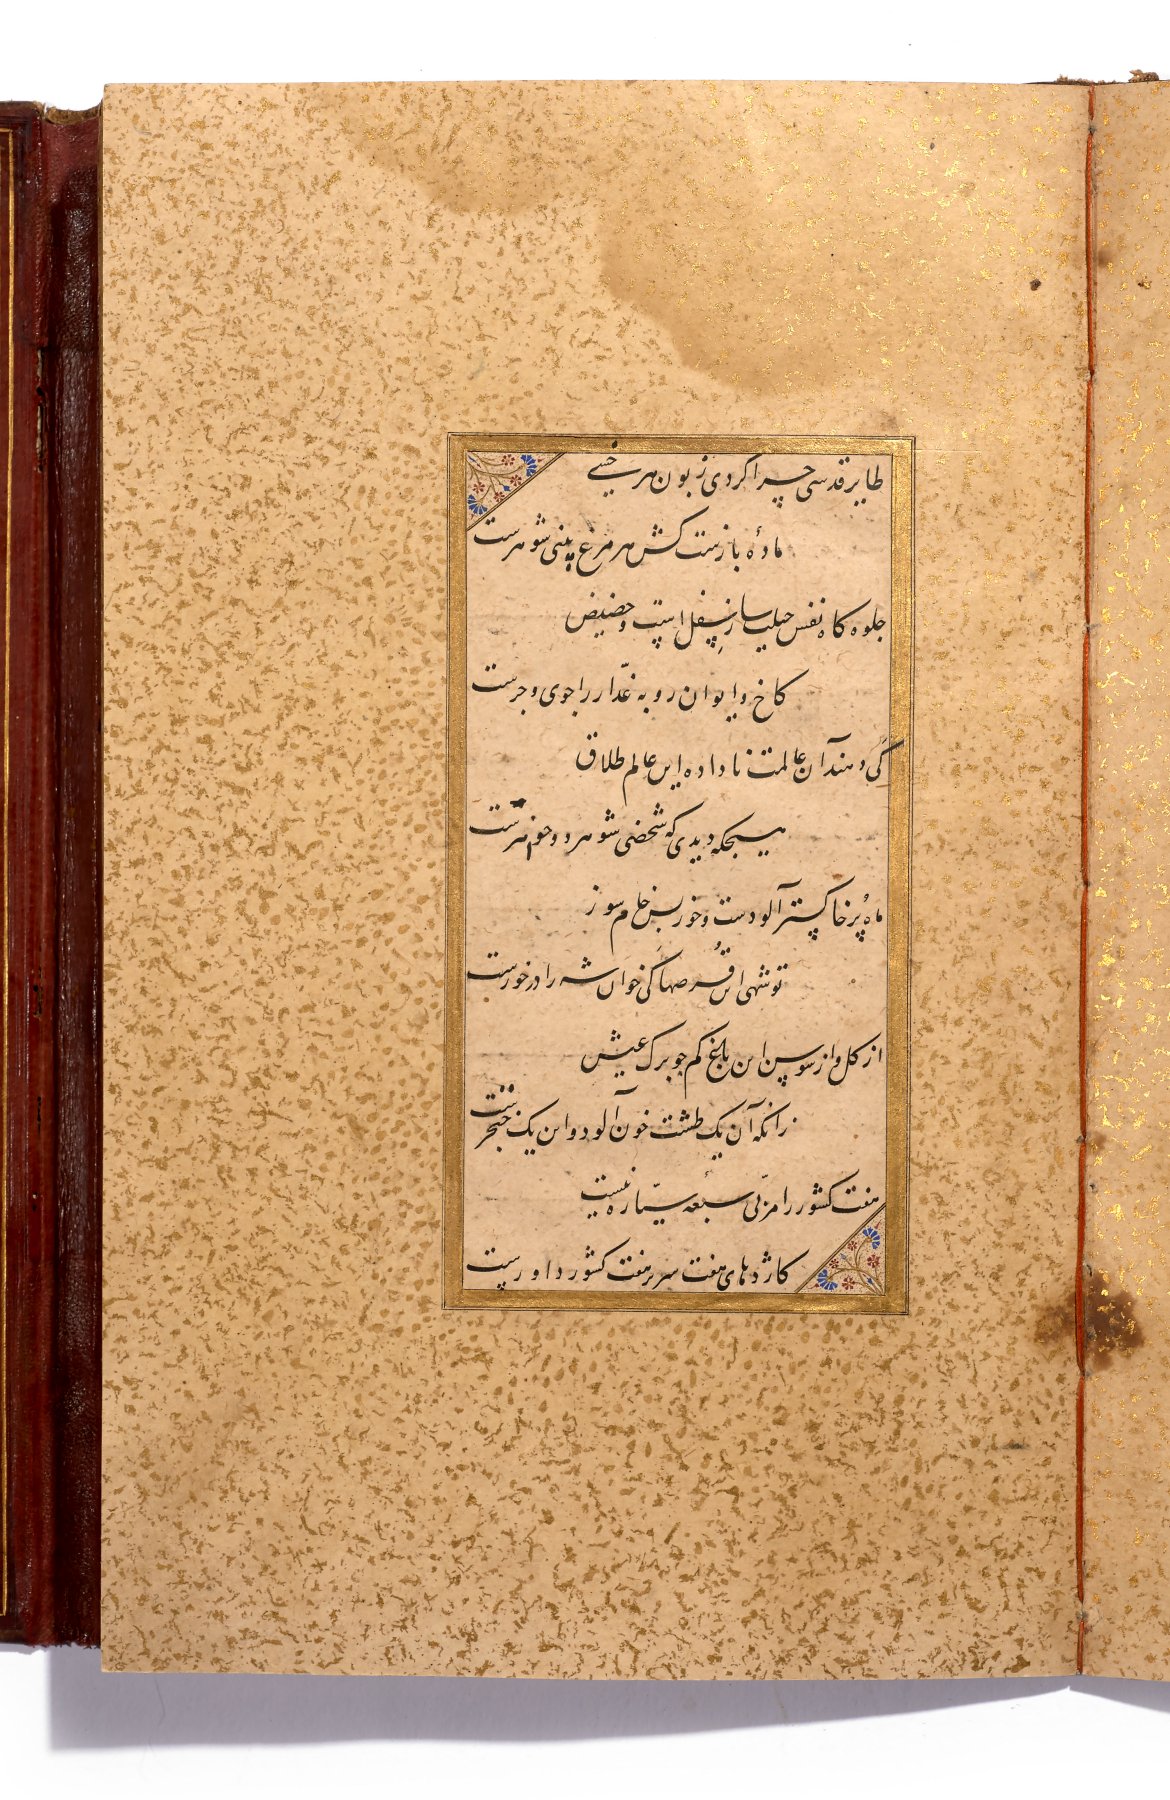 طایر قدسی چرا گردی زبون هر خسے
مادهٔ بازست کش هر مرغ پینی شوهرست
جلوه کاه نفس حیلت ساز سفل است و حضیض
کاخ و ایوان روبه غدّار را جوی و جرست
کی دهند آن عالمت ناداده این عالم طلاق
هیچکه دیدی که شخصی شوهر دو خوهرست
ماه پر خاکستر آلودست و خور بس خام سوز
تو شهی این قرصها کی خوان شه را درخورست
از کل و از سوسن این باغ کم جو برک عیش
زانکه آن یک طشت خون آلود و این یک خنجرست
هفت کشور را مزکّی سبعه سیّاره نیست
کاژدهای هفت سر بر هفت کشور داورست